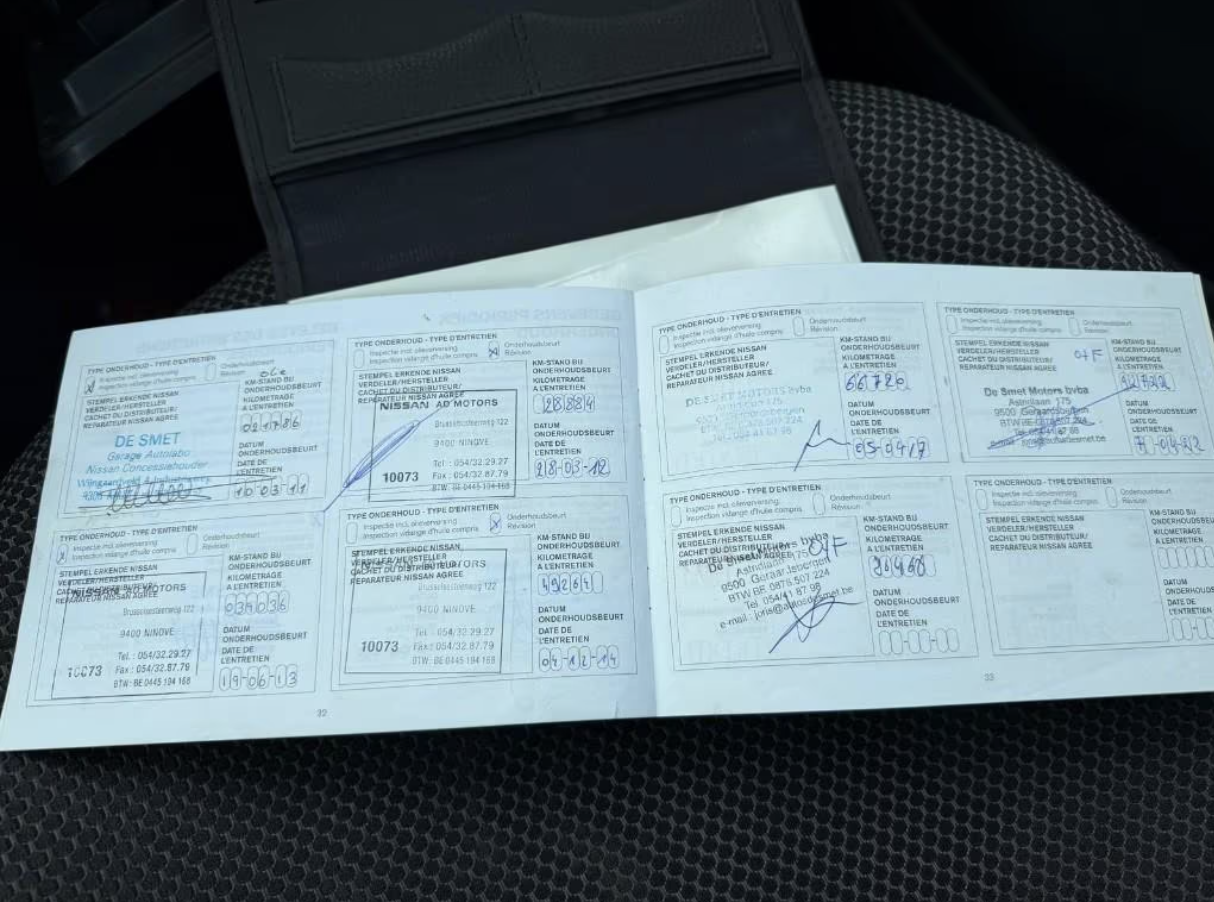 TYPE ONDERHOUD - TYPE D'ENTRETIEN
Inspectie incl. olieverversing
Inspection vidange d'huile compris
Onderhoudsbeurt
Révision
STEMPEL ERKENDE NISSAN
VERDELER/HERSTELLER
CACHET DU DISTRIBUTEUR/
REPARATEUR NISSAN AGREE
KM-STAND BIJ
ONDERHOUDSBEURT
KILOMETRAGE
A L'ENTRETIEN
021786
DE SMET
Garage Autolabo
Nissan Concessiehouder
DATUM
ONDERHOUDSBEURT
DATE DE
L'ENTRETIEN
10-03-11
TYPE ONDERHOUD - TYPE D'ENTRETIEN
Inspectie incl. olieverversing
Inspection vidange d'huile compris
Onderhoudsbeurt
Révision
STEMPEL ERKENDE NISSAN
VERDELER/HERSTELLER
CACHET DU DISTRIBUTEUR/
REPARATEUR NISSAN AGREE
NISSAN AD MOTORS
Brusselsesteenweg 122
9400 NINOVE
10073
Tel : 054/32.29.27
Fax : 054/32.87.79
BTW: BE 0445 194 168
KM-STAND BIJ
ONDERHOUDSBEURT
KILOMETRAGE
A L'ENTRETIEN
28884
DATUM
ONDERHOUDSBEURT
DATE DE
L'ENTRETIEN
28-03-12
TYPE ONDERHOUD - TYPE D'ENTRETIEN
Inspectie incl. olieverversing
Inspection vidange d'huile compris
Onderhoudsbeurt
Révision
STEMPEL ERKENDE NISSAN
VERDELER/HERSTELLER
CACHET DU DISTRIBUTEUR/
REPARATEUR NISSAN AGREE
NISSAN MOTORS
Brusselsesteenweg 122
9400 NINOVE
10073
Tel. : 054/32.29.27
Fax : 054/32.87.79
BTW: BE 0445 194 168
KM-STAND BIJ
ONDERHOUDSBEURT
KILOMETRAGE
A L'ENTRETIEN
034036
DATUM
ONDERHOUDSBEURT
DATE DE
L'ENTRETIEN
19-06-13
TYPE ONDERHOUD - TYPE D'ENTRETIEN
Inspectie incl. olieverversing
Inspection vidange d'huile compris
Onderhoudsbeurt
Révision
STEMPEL ERKENDE NISSAN
VERDELER/HERSTELLER
CACHET DU DISTRIBUTEUR/
REPARATEUR NISSAN AGREE
Brusselsesteenweg 122
9400 NINOVE
10073
Tel : 054/32.29.27
Fax : 054/32.87.79
BTW: BE 0445 194 168
KM-STAND BIJ
ONDERHOUDSBEURT
KILOMETRAGE
A L'ENTRETIEN
49264
DATUM
ONDERHOUDSBEURT
DATE DE
L'ENTRETIEN
04-12-14
32
TYPE ONDERHOUD - TYPE D'ENTRETIEN
Inspectie incl. olieverversing
Inspection vidange d'huile compris
Onderhoudsbeurt
Révision
STEMPEL ERKENDE NISSAN
VERDELER/HERSTELLER
CACHET DU DISTRIBUTEUR/
REPARATEUR NISSAN AGREE
DE SMET MOTORS bvba
KM-STAND BIJ
ONDERHOUDSBEURT
KILOMETRAGE
A L'ENTRETIEN
DATUM
ONDERHOUDSBEURT
DATE DE
L'ENTRETIEN
TYPE ONDERHOUD - TYPE D'ENTRETIEN
Inspectie incl. olieverversing
Inspection vidange d'huile compris
Onderhoudsbeurt
Révision
STEMPEL ERKENDE NISSAN
VERDELER/HERSTELLER
CACHET DU DISTRIBUTEUR/
REPARATEUR NISSAN AGREE
De Smet Motors bvba
Astridlaan 175
9500 Geraardsbergen
KM-STAND BIJ
ONDERHOUDSBEURT
KILOMETRAGE
A L'ENTRETIEN
DATUM
ONDERHOUDSBEURT
DATE DE
L'ENTRETIEN
TYPE ONDERHOUD - TYPE D'ENTRETIEN
Inspectie incl. olieverversing
Inspection vidange d'huile compris
Onderhoudsbeurt
Révision
STEMPEL ERKENDE NISSAN
VERDELER/HERSTELLER
CACHET DU DISTRIBUTEUR/
REPARATEUR NISSAN AGREE
De Smet Motors bvba
Astridlaan 175
9500 Geraardsbergen
BTW BE 0878 507 224
Tel 054/41 87 98
e-mail : joris@autosdesmet.be
KM-STAND BIJ
ONDERHOUDSBEURT
KILOMETRAGE
A L'ENTRETIEN
DATUM
ONDERHOUDSBEURT
DATE DE
L'ENTRETIEN
TYPE ONDERHOUD - TYPE D'ENTRETIEN
Inspectie incl. olieverversing
Inspection vidange d'huile compris
Onderhoudsbeurt
Révision
STEMPEL ERKENDE NISSAN
VERDELER/HERSTELLER
CACHET DU DISTRIBUTEUR/
REPARATEUR NISSAN AGREE
KM-STAND BIJ
ONDERHOUDSBEURT
KILOMETRAGE
A L'ENTRETIEN
DATUM
ONDERHOUDSBEURT
DATE DE
L'ENTRETIEN
33